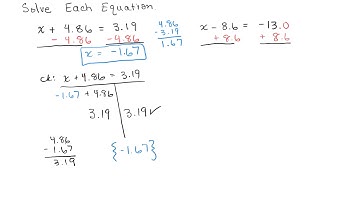 Solve Each Equation.
x + 4.86 = 3.19
- 4.86 -4.86
x = -1.67
4.86
-3.19
1.67
x - 8.6 = -13.0
+ 8.6 + 8.6
ck: x + 4.86 = 3.19
-1.67 + 4.86
3.19 3.19 ✓
4.86
- 1.67
3.19
{-1.67}